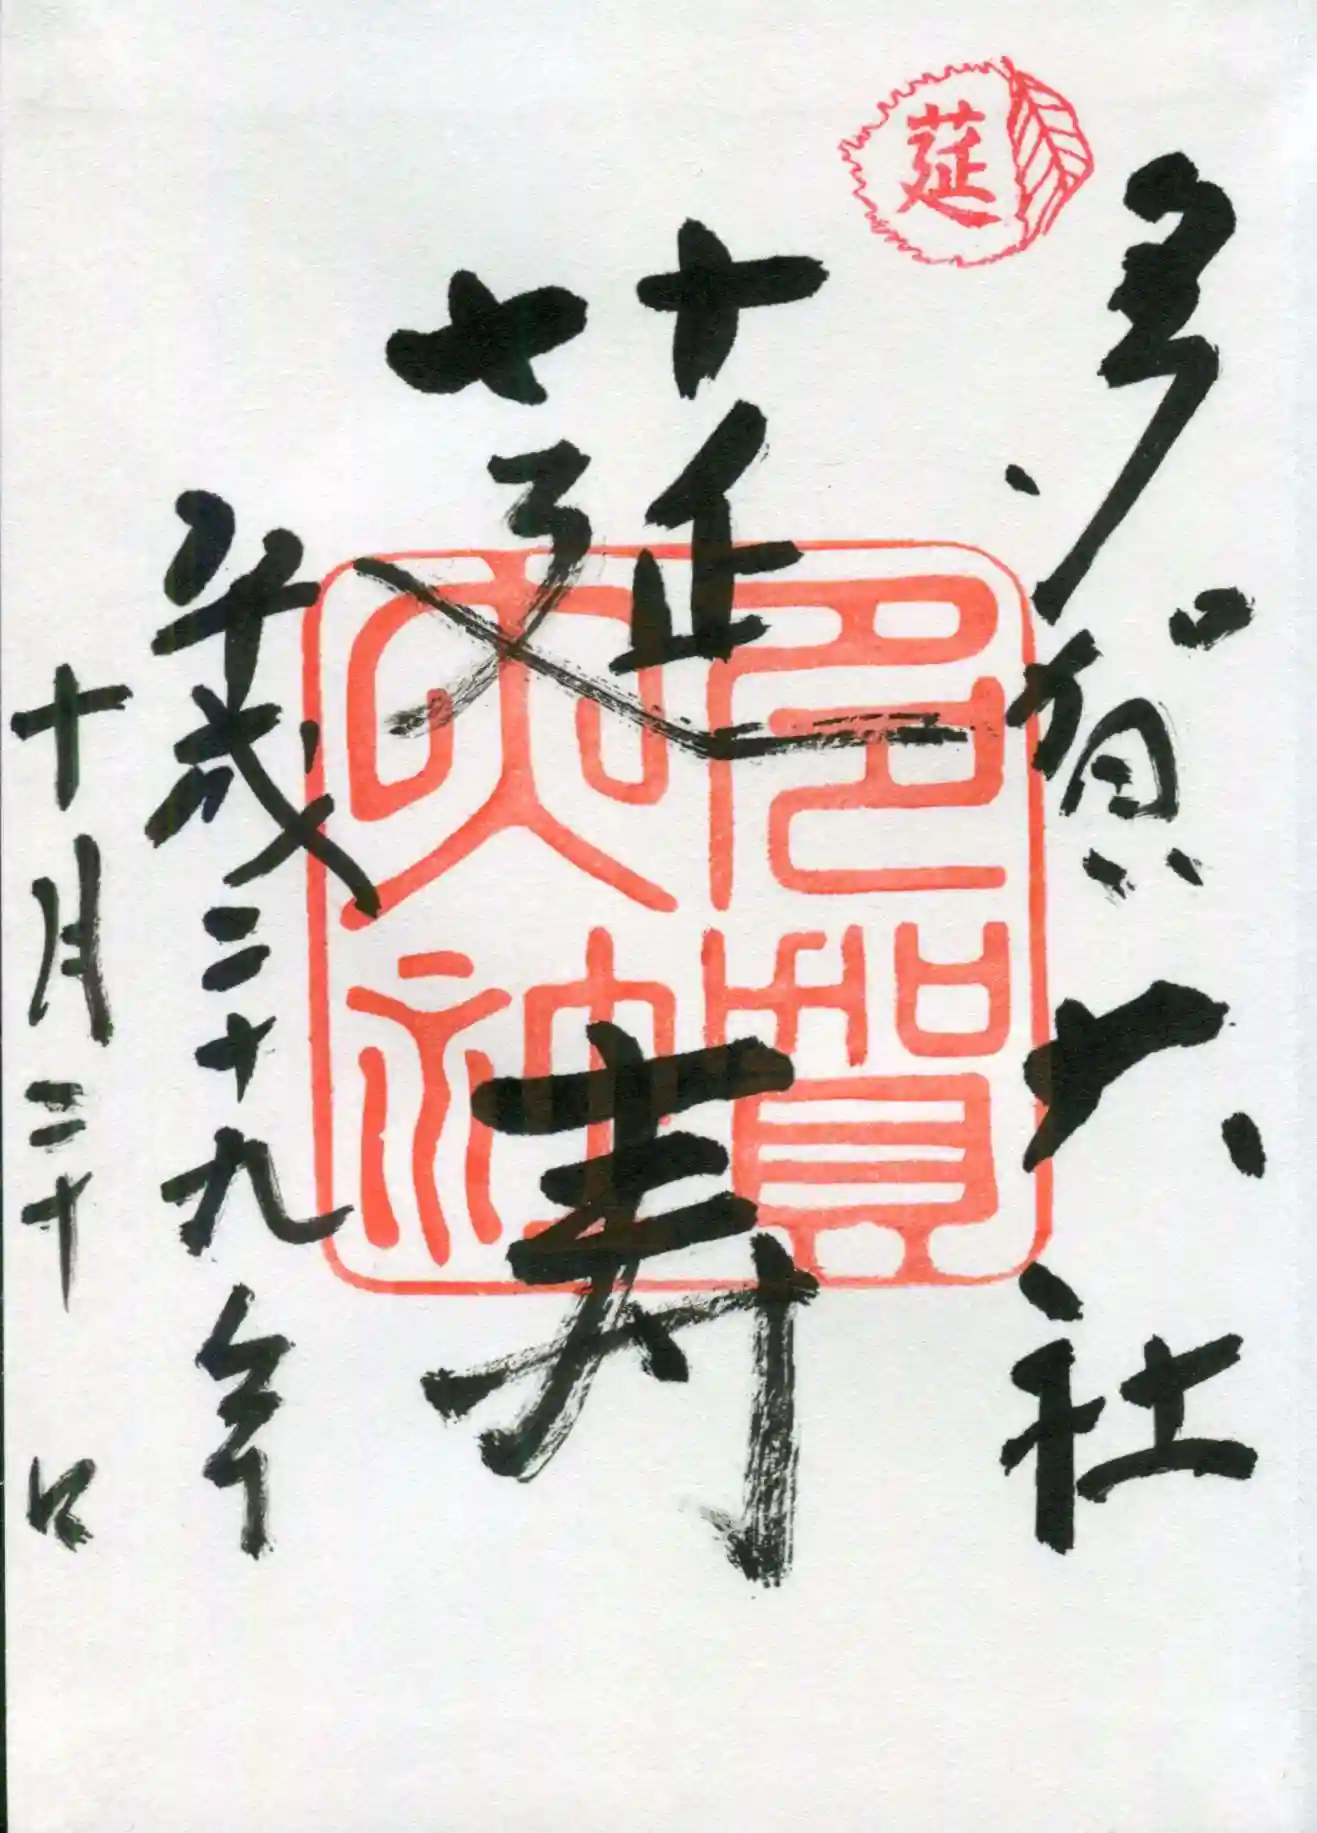 莚
多賀大社
莚寿
多賀大神
平成二十九年
十月二十日